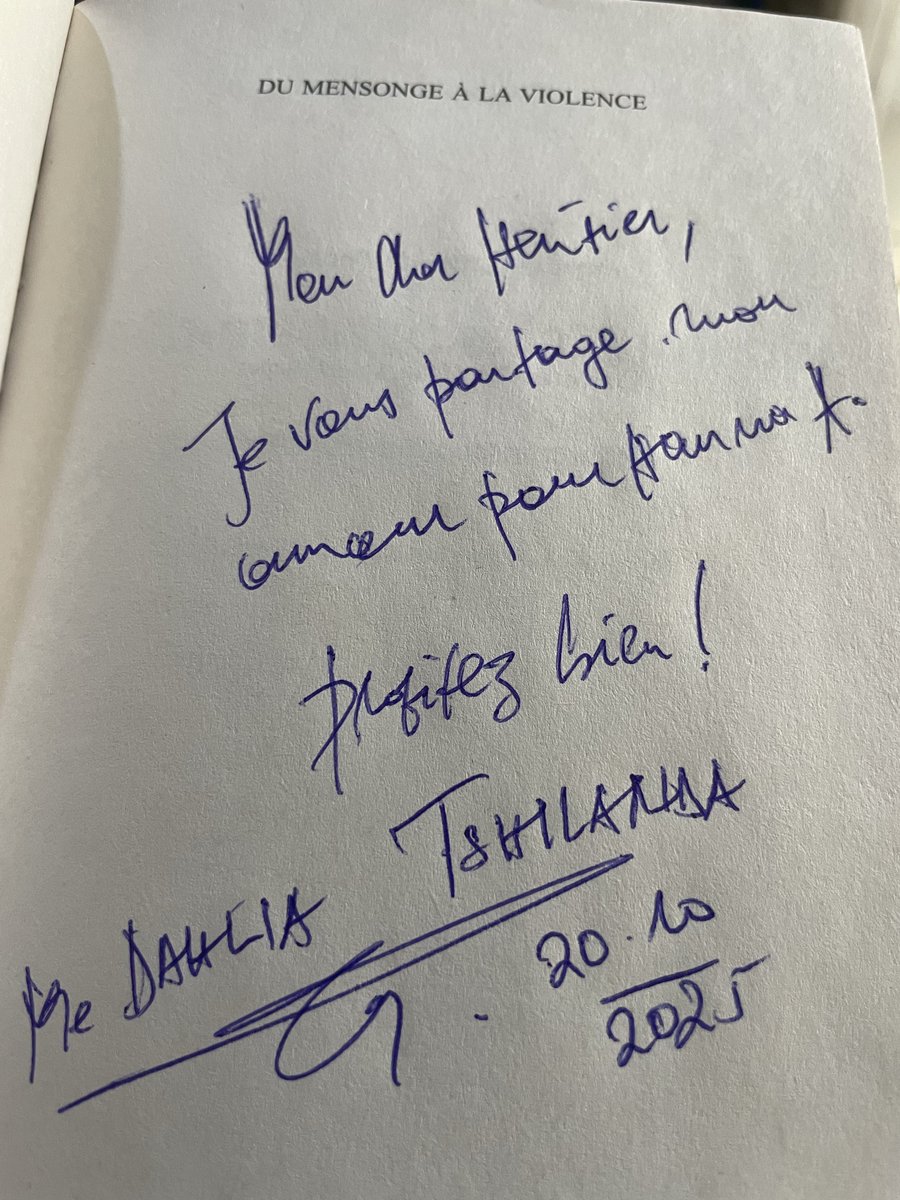 DU MENSONGE À LA VIOLENCE
Mon cher Héritier,
Je vous partage mon
amour pour Hanna A.
Profitez bien !
TSHILANDA
Me DAHLIA
20.10
2025